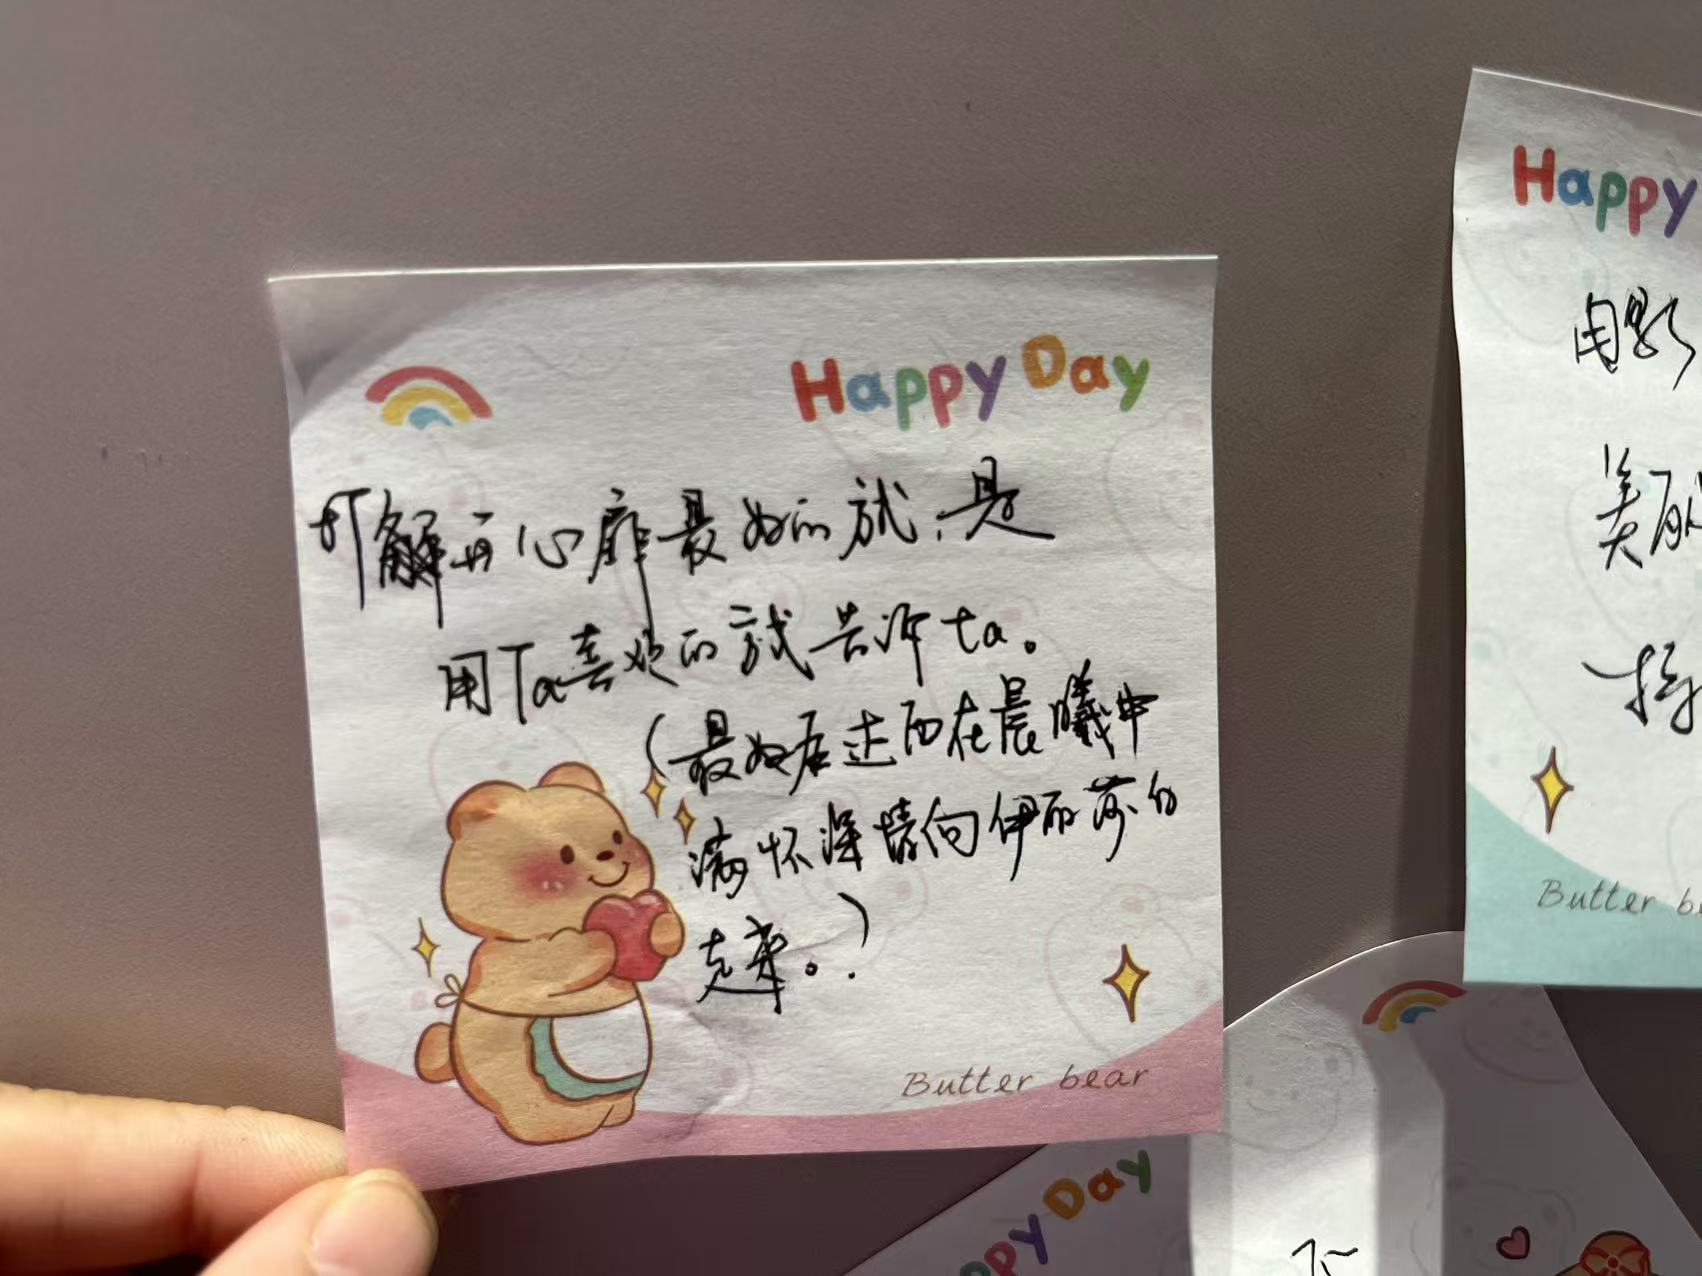 Happy Day
打解开心扉最好的就是
用Ta喜欢的方式告诉ta。
(最好后达西在晨曦中
满怀深情向伊丽莎白
走来。.)
Butter bear
Happy
电影
美丽
Butter be
ppy Day
不